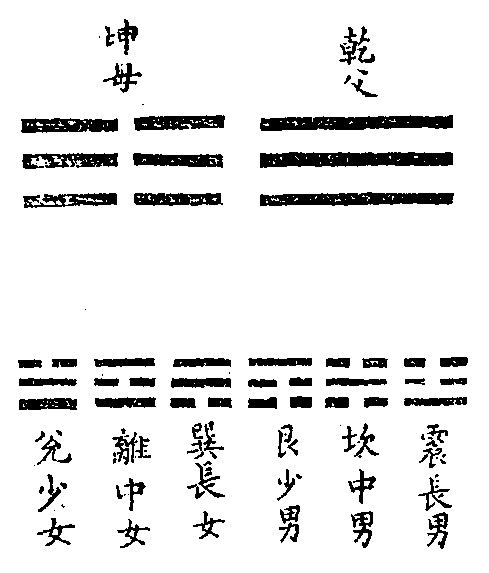 乾父
坤母
震長男
坎中男
艮少男
巽長女
離中女
兌少女